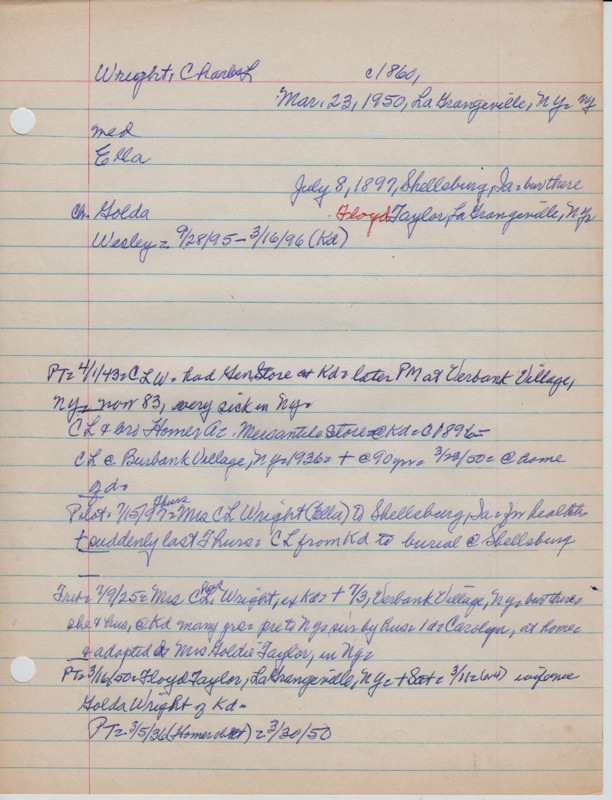 Wright, Charles L c1860,
Mar. 23, 1950, LaGrangeville, NY= NY
med
Ella
July 8, 1897, Shellsburg, Ia= bur there
Ch. Golda Floyd Taylor, LaGrangeville, NY=
Wesley= 9/28/95 - 3/16/96 (Kd)
PT= 4/1/43= C L W= had Gen. Store at Kd= later PM at Verbank Village,
NY= now 83, very sick in NY=
CL & bro Homer A= Mercantile Store @ Kd= c1896=
CL @ Burbank Village, NY=1936= + @ 90 yrs= 3/23/50= @ home
of d=
Pilot= 7/15/97= Thurs Mrs CL Wright (Ella) to Shellsburg, Ia= for health=
+ suddenly last Thurs= CL from Kd to burial @ Shellsburg
Trib= 7/9/25= Mrs C L Wright, ex Kd= + 7/3, Verbank Village, NY= bur there=
she & hus, @ Kd many yrs= pre to NY= sur by hus= 1 d= Carolyn, at home=
& adopted d Mrs Goldie Taylor, in NY=
PT= 3/16/50= Floyd Taylor, LaGrangeville, NY= + Sat= 3/11= wife nee
Golda Wright of Kd=
PT= 3/5/36 (Homer obit) = 3/30/50